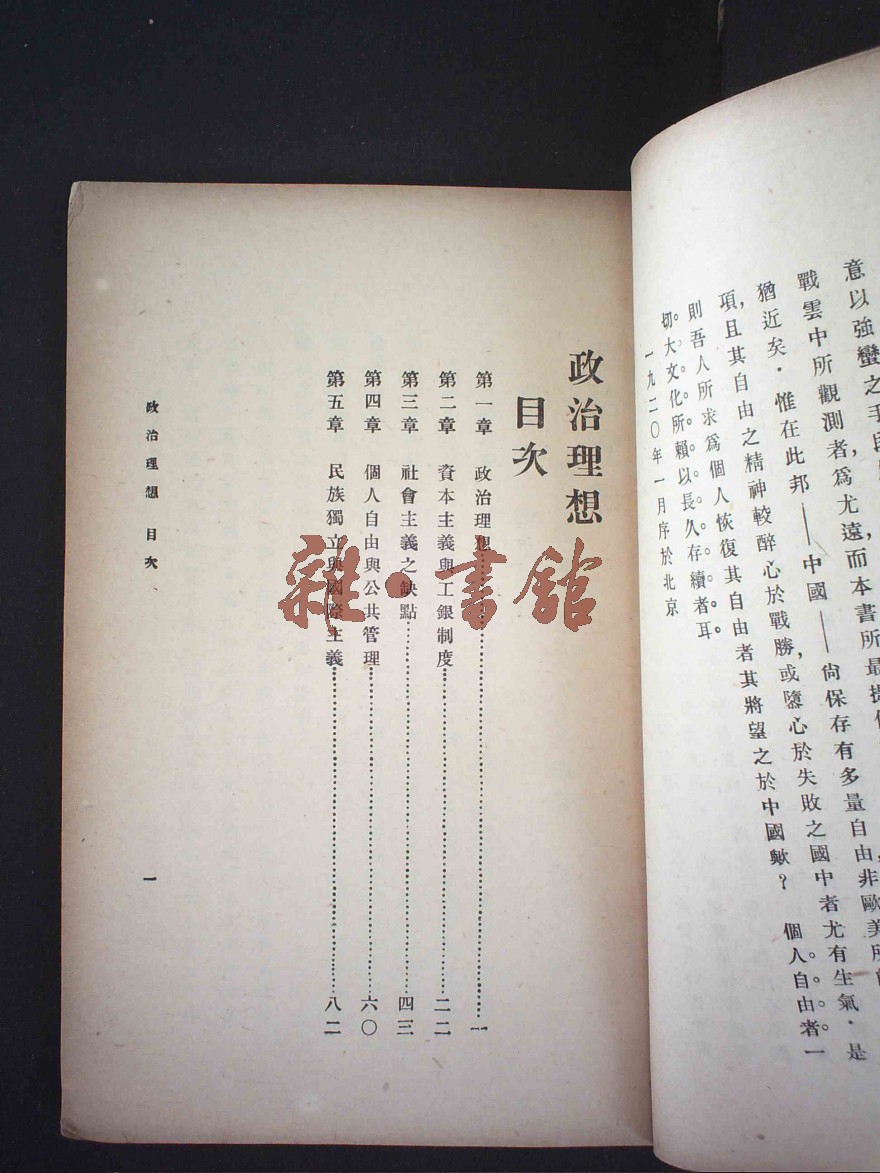 意以強蠻之手段
戰雲中所觀測者，爲尤遠，而本書所最提
猶近矣．惟在此邦——中國——尙保存有多量自由，非歐美所
項，且其自由之精神較醉心於戰勝，或墮心於失敗之國中者尤有生氣．是
則吾人所求爲個人恢復其自由者其將望之於中國歟？　個人自由者一
切大文化所賴以長久存續者耳。
一九二〇年一月序於北京
政治理想
目次
第一章　政治理想……一
第二章　資本主義與工銀制度……二二
第三章　社會主義之缺點……四三
第四章　個人自由與公共管理……六〇
第五章　民族獨立與國際主義……八二
政治理想　目次
一
雜·書館